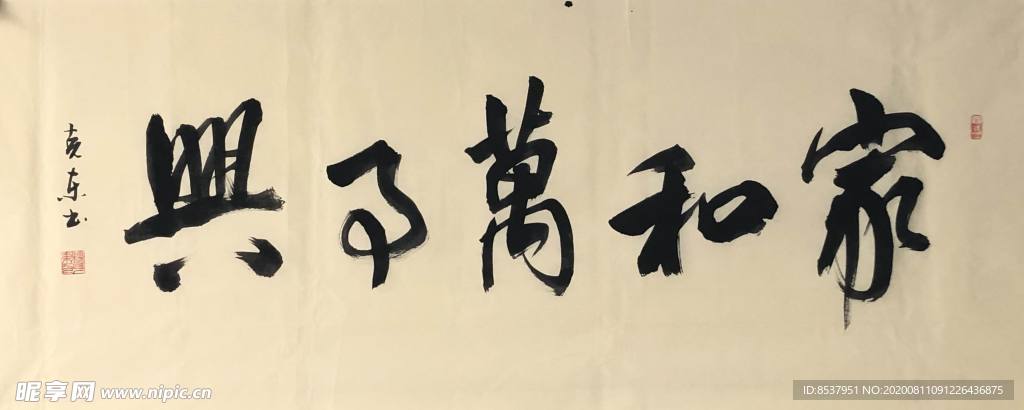 家和萬事興
克东书
昵享网 www.nipic.cn
ID:8537951 NO:20200811091226436875